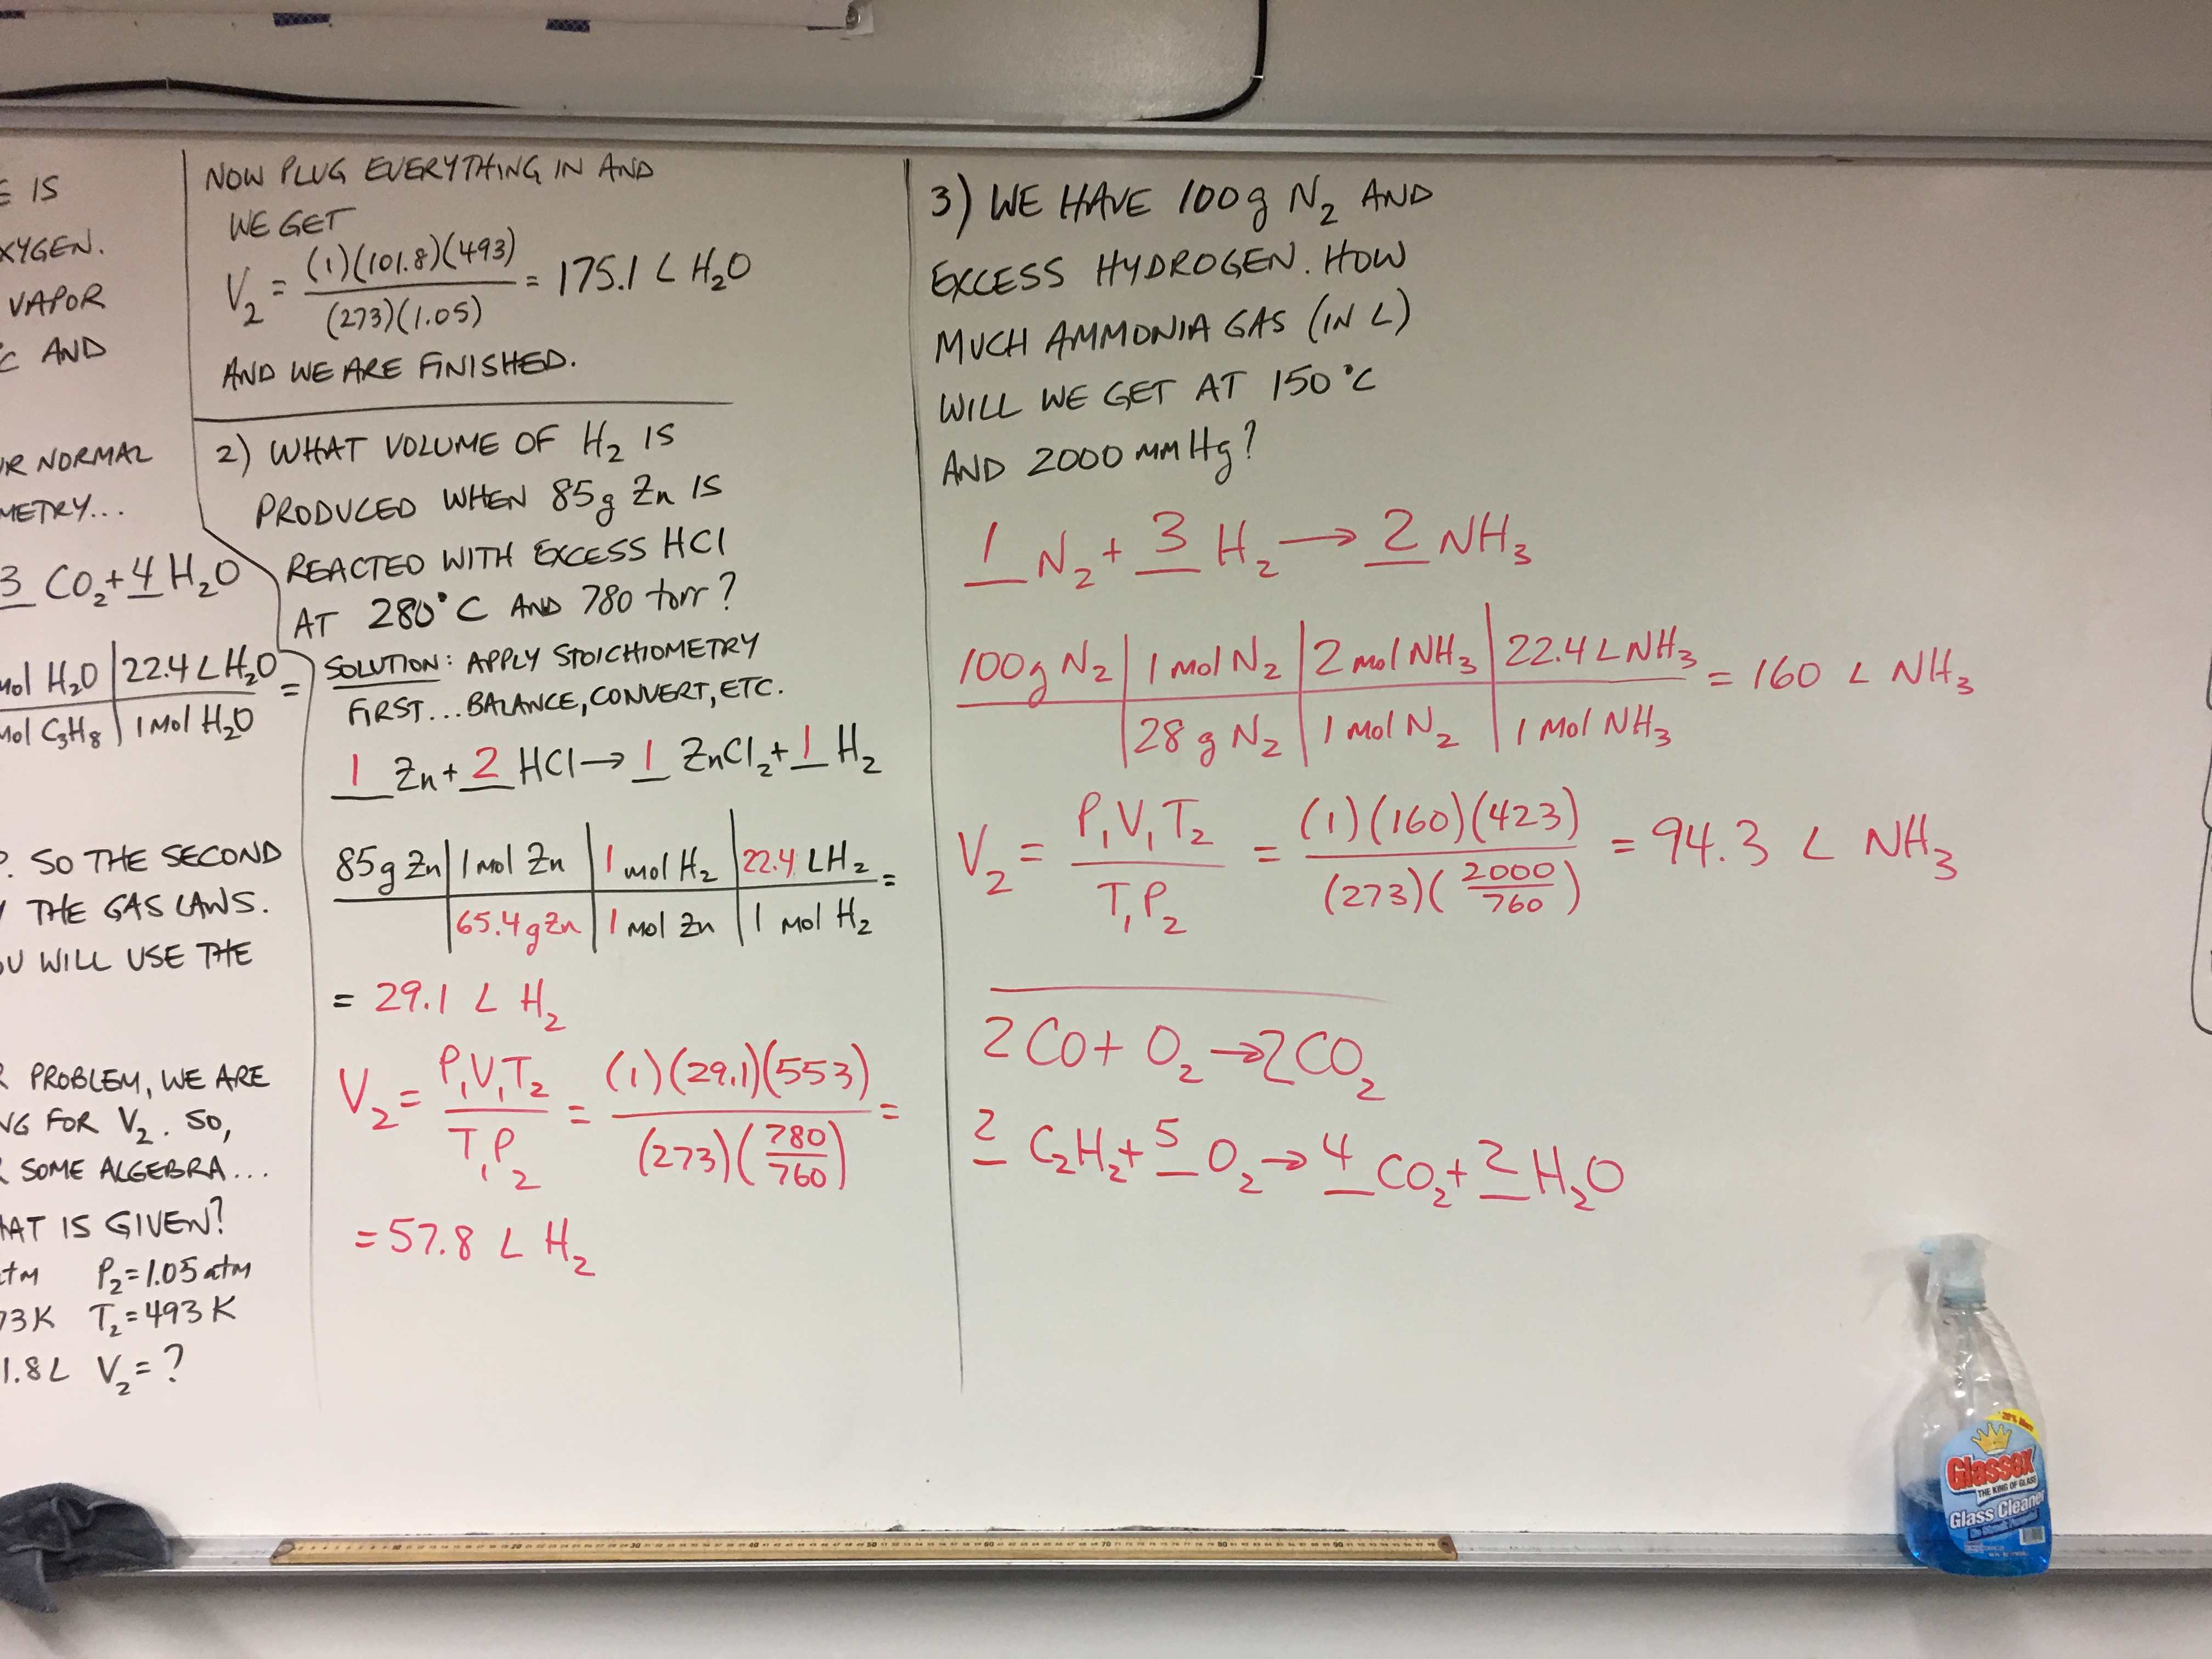 E IS
XYGEN.
VAPOR
°C AND
UR NORMAL
METRY...
3 CO₂ + 4 H₂O
mol H₂O | 22.4 L H₂O =
mol C₃H₈ | 1 mol H₂O
P. SO THE SECOND
Y THE GAS LAWS.
OU WILL USE THE
R PROBLEM, WE ARE
NG FOR V₂. SO,
R SOME ALGEBRA...
HAT IS GIVEN?
atm P₂=1.05 atm
73K T₂=493 K
1.8 L V₂=?
NOW PLUG EVERYTHING IN AND
WE GET
V₂ = (1)(101.8)(493) / (273)(1.05) = 175.1 L H₂O
AND WE ARE FINISHED.
2) WHAT VOLUME OF H₂ IS
PRODUCED WHEN 85g Zn IS
REACTED WITH EXCESS HCl
AT 280°C AND 780 torr?
SOLUTION: APPLY STOICHIOMETRY
FIRST... BALANCE, CONVERT, ETC.
1 Zn + 2 HCl → 1 ZnCl₂ + 1 H₂
85g Zn | 1 mol Zn | 1 mol H₂ | 22.4 L H₂ =
65.4 g Zn | 1 mol Zn | 1 mol H₂
= 29.1 L H₂
V₂ = P₁V₁T₂ / T₁P₂ = (1)(29.1)(553) / (273)(780/760) =
= 57.8 L H₂
3) WE HAVE 100g N₂ AND
EXCESS HYDROGEN. HOW
MUCH AMMONIA GAS (IN L)
WILL WE GET AT 150°C
AND 2000 mm Hg?
1 N₂ + 3 H₂ → 2 NH₃
100g N₂ | 1 mol N₂ | 2 mol NH₃ | 22.4 L NH₃ = 160 L NH₃
28 g N₂ | 1 mol N₂ | 1 mol NH₃
V₂ = P₁V₁T₂ / T₁P₂ = (1)(160)(423) / (273)(2000/760) = 94.3 L NH₃
2 CO + O₂ → 2CO₂
2 C₂H₂ + 5 O₂ → 4 CO₂ + 2 H₂O
Glassex
THE KING OF GLASS
Glass Cleaner